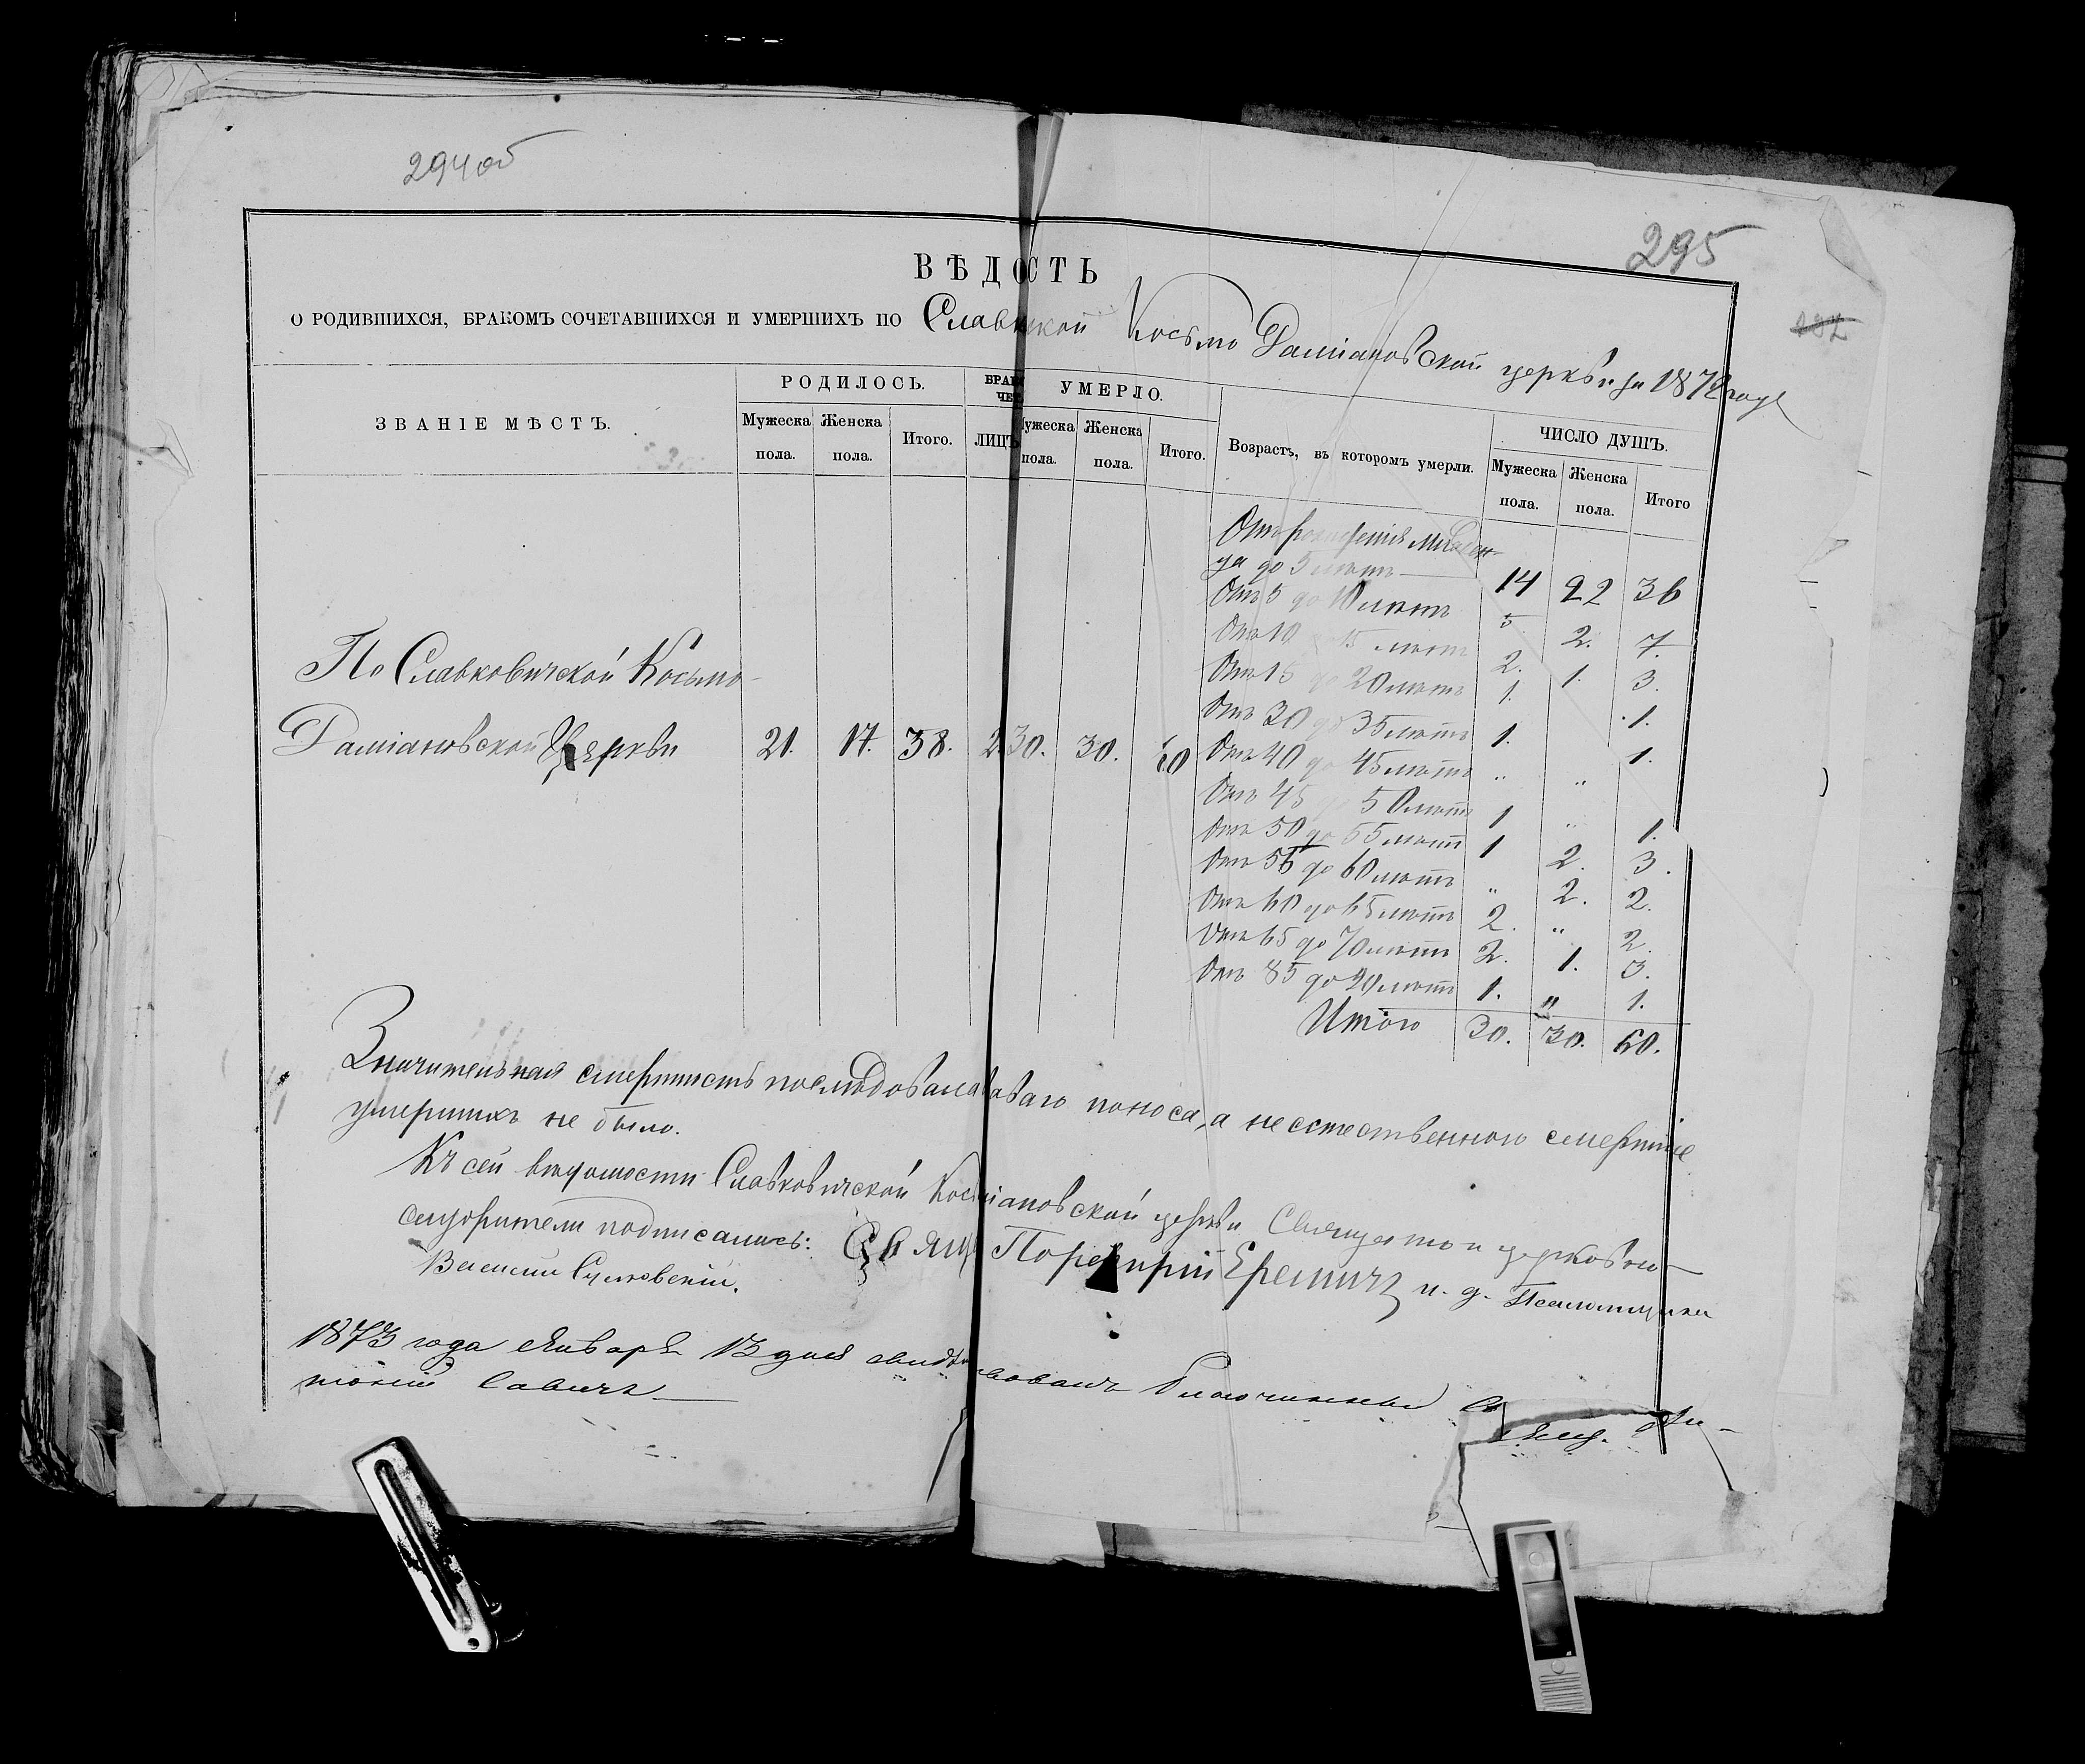 294 об
295
ВѢДОСТЬ
О РОДИВШИХСЯ, БРАКОМЪ СОЧЕТАВШИХСЯ И УМЕРШИХЪ ПО Славской Косьмо Даміановской церкви за 1872 годъ
ЗВАНІЕ МѢСТЪ.
РОДИЛОСЬ.
БРАК
ЧЕТ
ЛИЦЪ
УМЕРЛО.
Мужеска пола.
Женска пола.
Итого.
ужеска пола.
Женска пола.
Итого.
Возрастъ, въ которомъ умерли.
ЧИСЛО ДУШЪ.
Мужеска пола.
Женска пола.
Итого
По Славковичской Косьмо-
Даміановской Церкви 21. 17. 38. 2 30. 30. 60
Отъ рожденія младен-
ца до 5 лѣтъ 14 22 36
Отъ 5 до 10 лѣтъ 5 2. 7.
Отъ 10 15 лѣтъ 2. 1. 3.
Отъ 15 до 20 лѣтъ 1. 1.
Отъ 30 до 35 лѣтъ 1. 1.
Отъ 40 до 45 лѣтъ " "
Отъ 45 50 лѣтъ 1 " 1.
Отъ 50 до 55 лѣтъ 1 2. 3.
Отъ 56 до 60 лѣтъ " 2. 2.
Отъ 60 до 65 лѣтъ 2. " 2.
Отъ 65 до 70 лѣтъ 2. 1. 3.
Отъ 85 до 90 лѣтъ 1. " 1.
Итого 30. 30. 60.
Значительная смертность послѣдовала ваго поноса, а неестественною смертію
умершихъ не было.
Къ сей вѣдомости Славковичской Кос міановской церкви Священно и церковно-
служители подписались: Свящ Порфирій Еремичъ и. д. Псаломщика
Василій Сулковскій.
1873 года Января 13 дня свидѣ вовалъ Благочинный Свящ. Ан-
тоній Савичъ